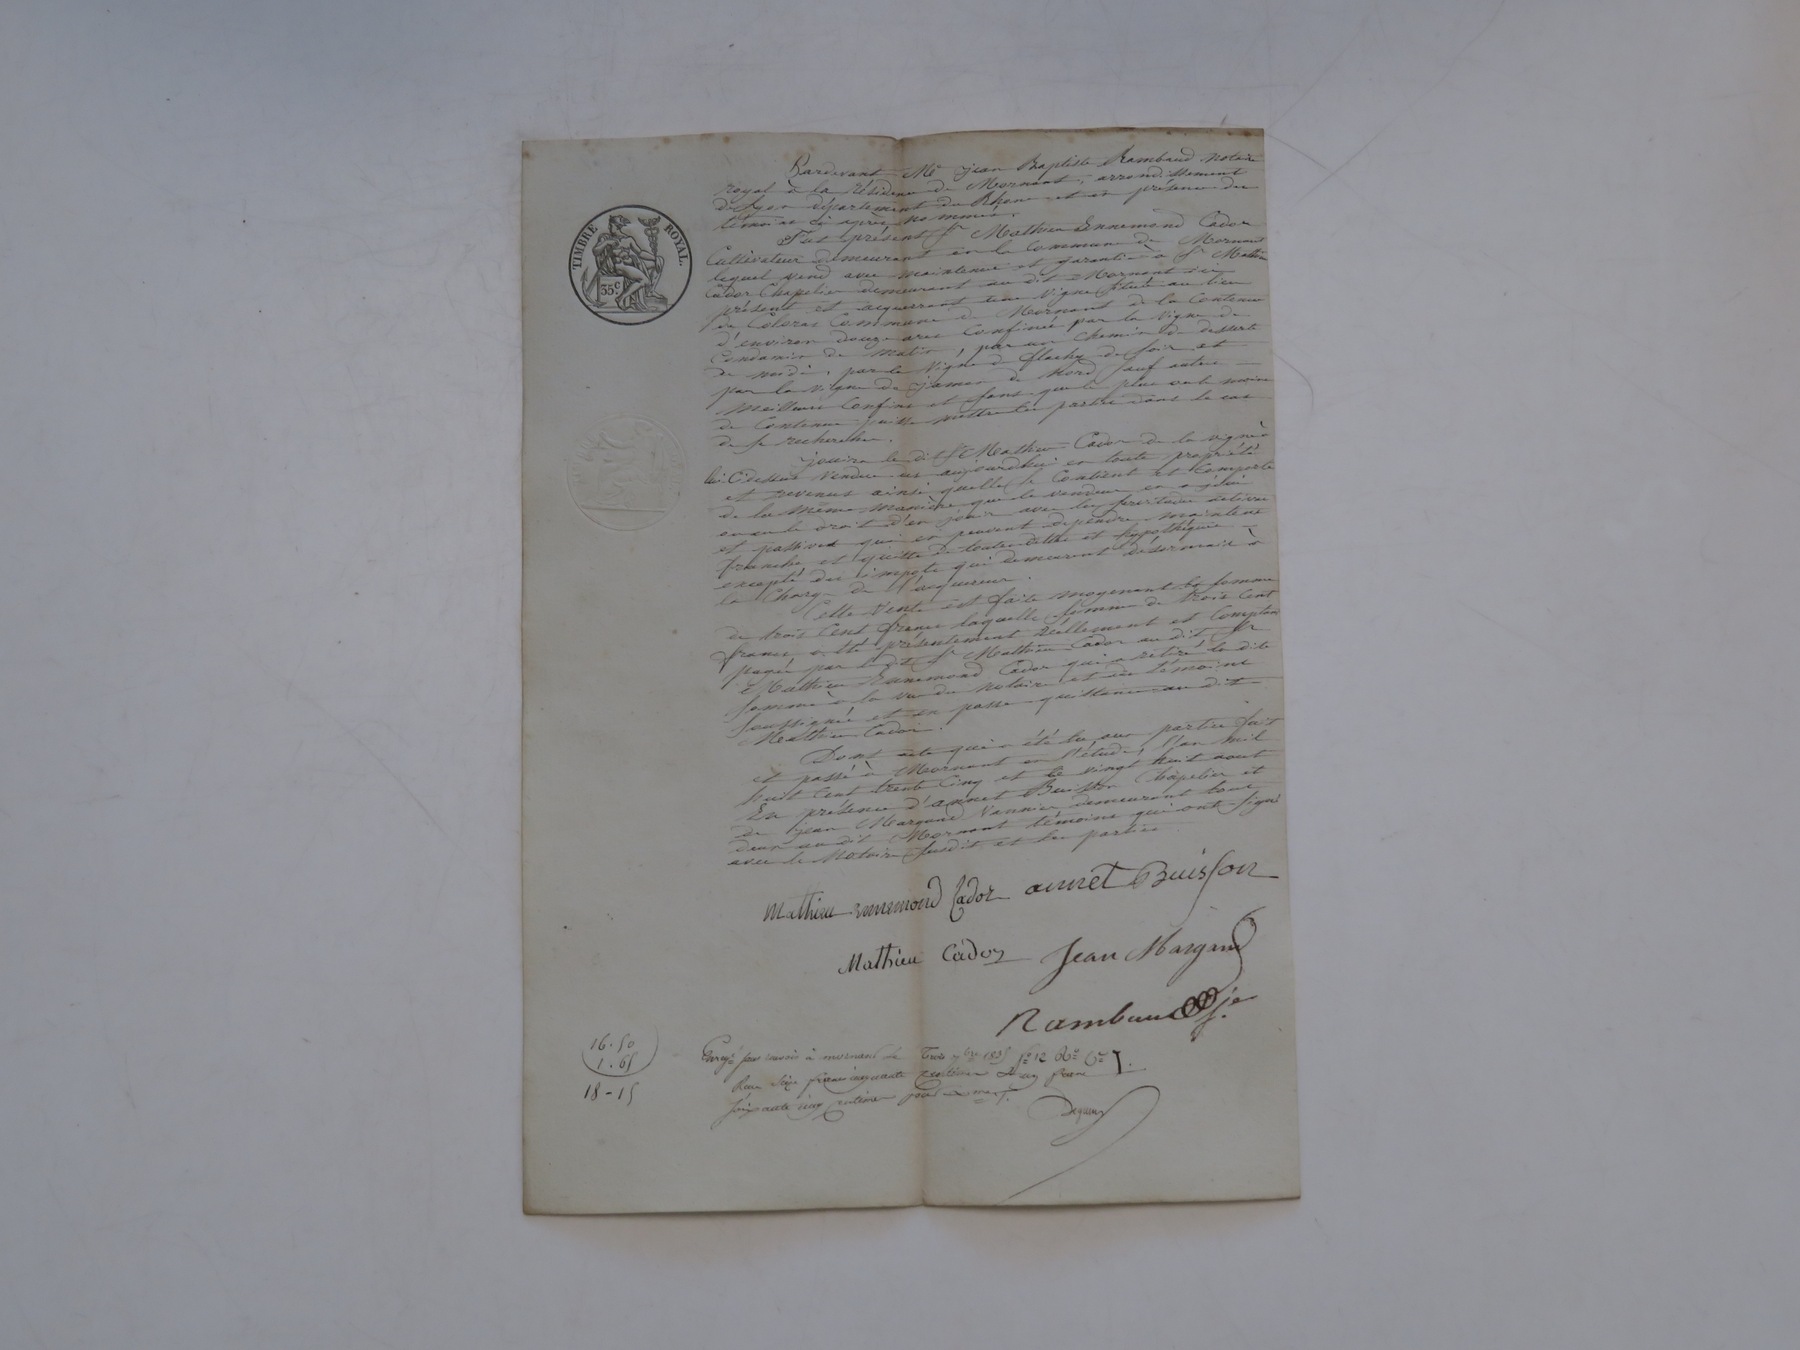 TIMBRE ROYAL.
35c
Pardevant Me Jean Baptiste Rambaud notaire
royal à la résidence de Mornant, arrondissement
de Lyon département du Rhône et en présence des
témoins ci après nommés.
Fut présent Sr Mathieu Ennemond Cador
Cultivateur demeurant en la Commune de Mornant
lequel vend avec maintenue et garantie à Sr Mathieu
Cador Chapelier demeurant au dit Mornant ici
présent et acquerrant une vigne situé au lieu
de Commune de Mornant de la Contenue
d'environ douze ares Confinée par la vigne de
Condamin de matin, par un chemin de desserte
de midi, par la vigne de flachy de soir et
par la vigne de de Nord sauf autre
Meilleurs Confins et sans que le plus ou le moins
de Contenue puisse mettre les parties dans le cas
de se rechercher.
jouira le dit Sr Mathieu Cador de la vigne
Ci dessus vendue dès aujourdhui en toute propriété
et revenus ainsi quelle se Contient et Comporte
de la même manière que le vendeur en a joui
ou eu le droit d'en jouir avec les servitudes actives
et passives qui en peuvent dépendre maintenue
franche et quitte de toutes dettes et hypothèques
excepté des impots qui demeurent désormais à
la Charge de l'acquéreur.
Cette vente est faite moyenant la somme
de trois Cent francs laquelle somme de trois Cent
francs a été présentement réellement et Comptant
payée par le dit Sr Mathieu Cador au dit Sr
Mathieu Ennemond Cador qui a retiré la dite
somme à la vue du notaire et des témoins
soussignés et en passe quittance au dit
Mathieu Cador.
Dont acte qui a été lu aux parties fait
et passé à Mornant en l'étude, l'an mil
huit Cent trente Cinq et le vingt huit aout
En présence d'annet Buisson Chapelier et
de Jean Margand Vannier demeurant tous
deux au dit Mornant témoins qui ont signé
avec le Notaire susdit et les parties
Mathieu Ennemond Cador annet Buisson
Mathieu Cador Jean Margand
Rambaud je
16.50
1.65
18-15
Enregé à mornant le Trois 7bre 1835 fo 12 Ro Ce 7.
Reçu seize francs cinquante centimes & un franc
soixante cinq centimes pour